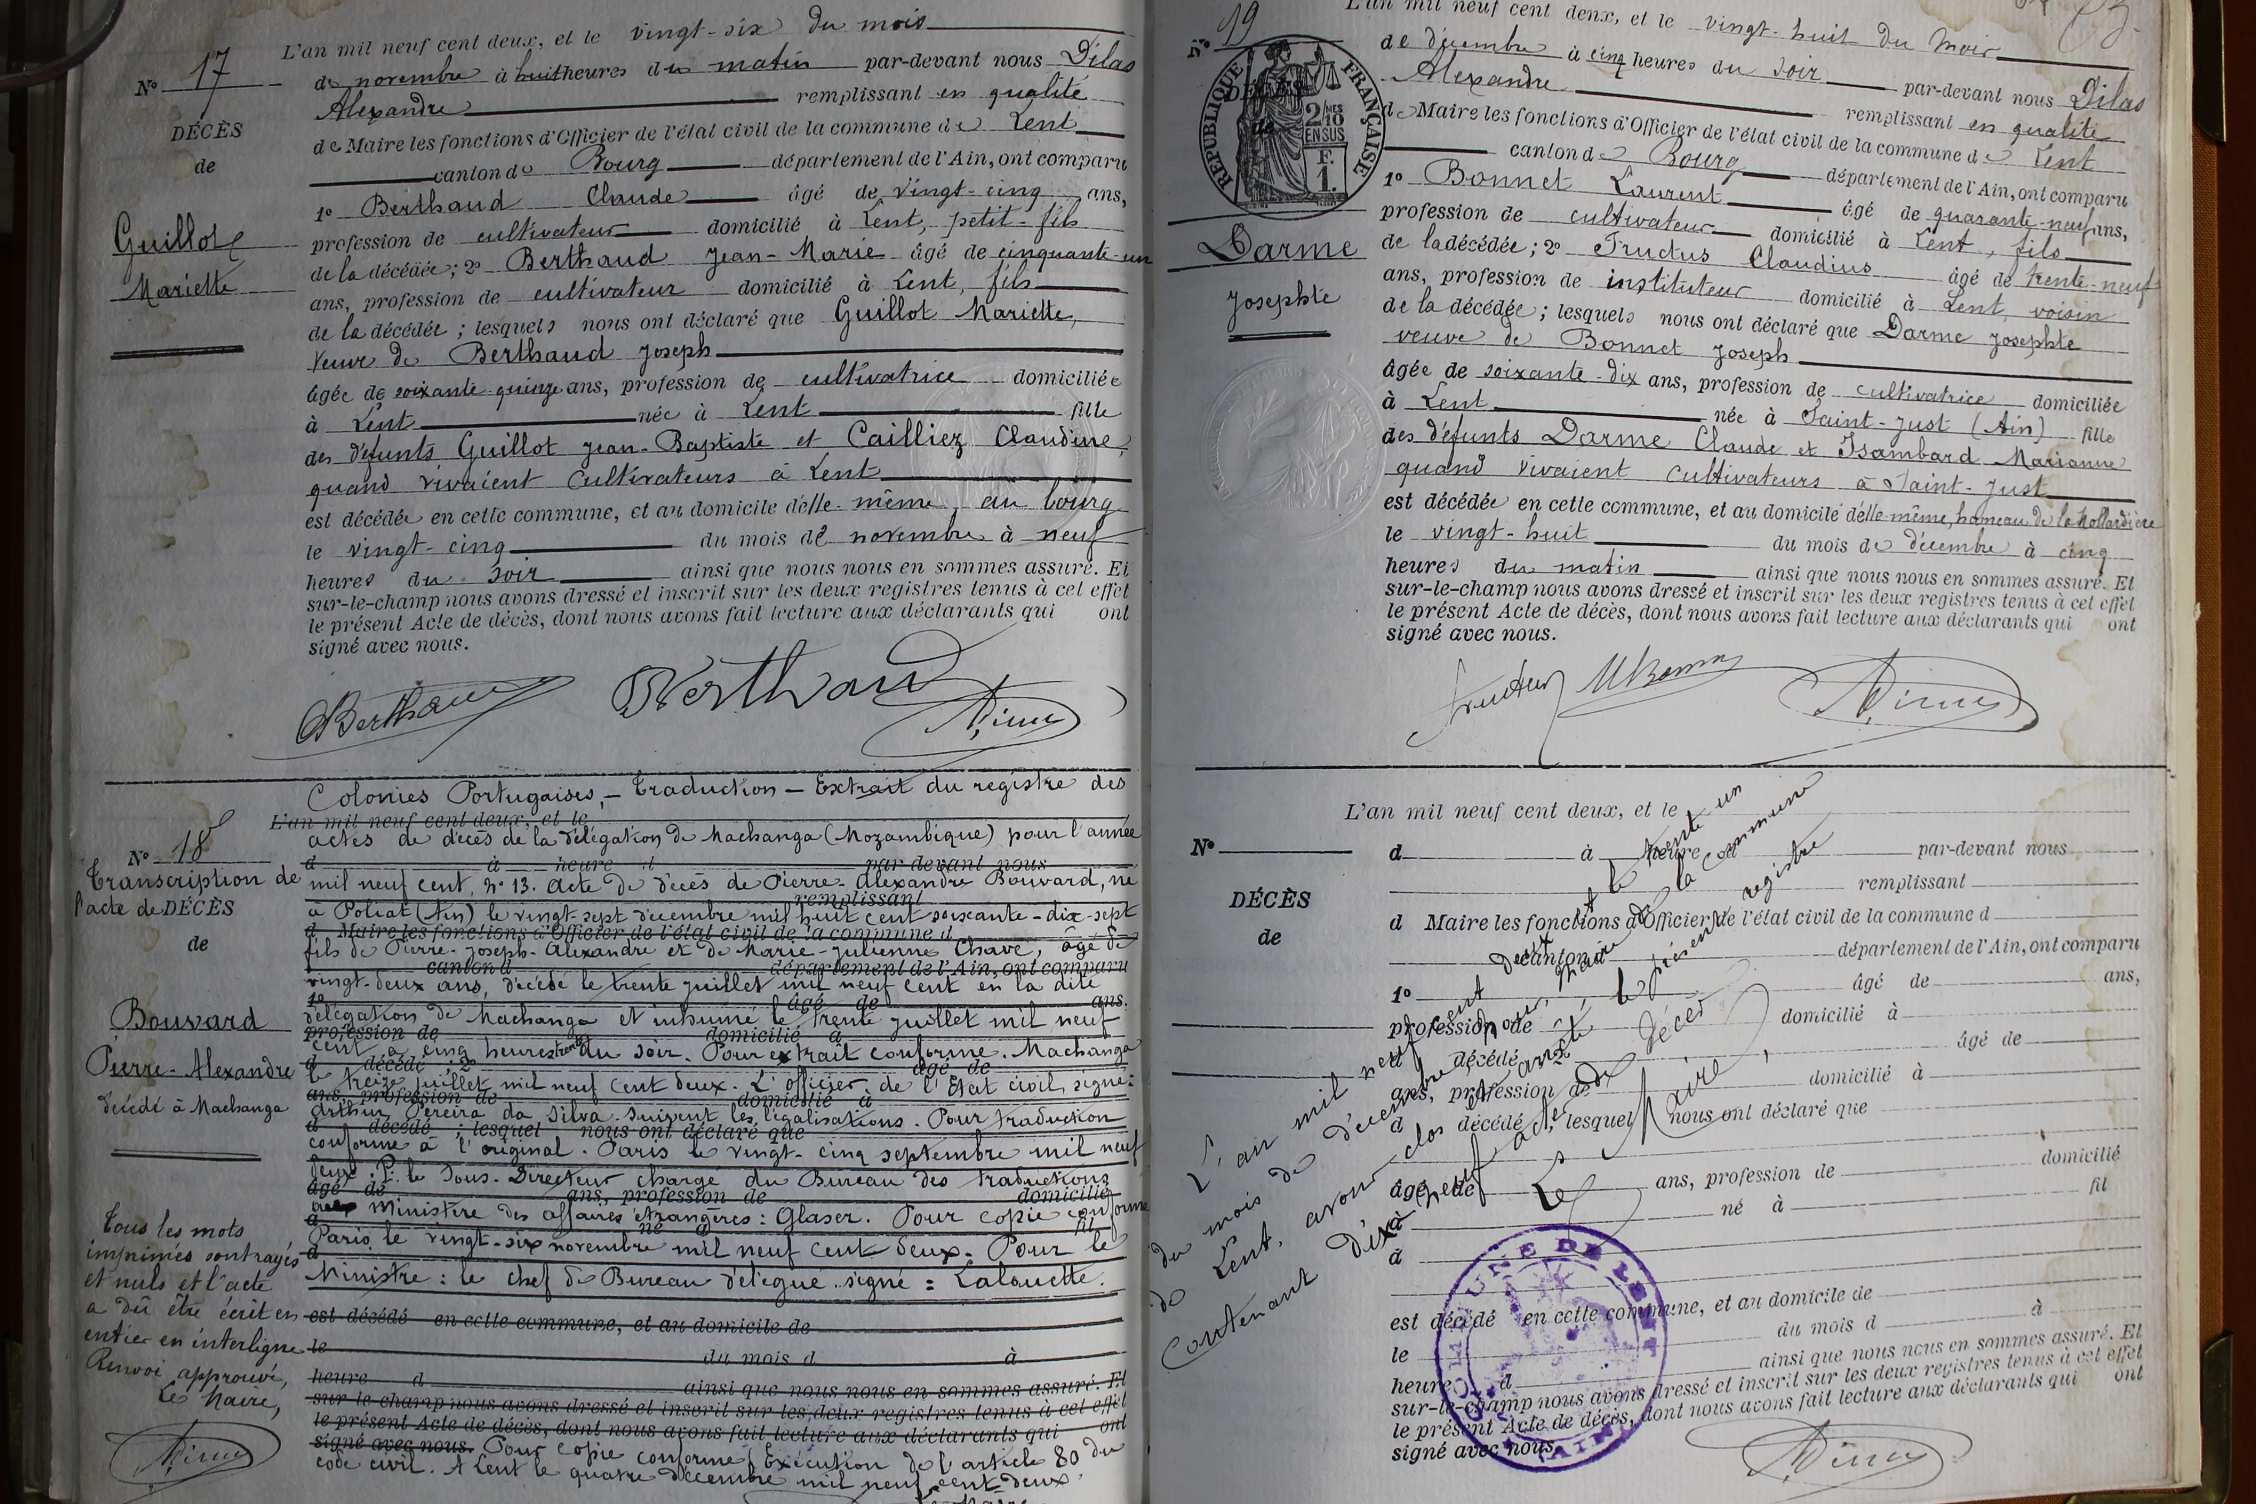 L'an mil neuf cent deux, et le vingt-six du mois
N° 17
de novembre à huit heures du matin par-devant nous Dilas
Alexandre remplissant en qualité
DÉCÈS
de Maire les fonctions d'Officier de l'état civil de la commune de Lent
de
canton de Bourg département de l'Ain, ont comparu
1° Berthaud Claude âgé de vingt-cinq ans,
Guillot
profession de cultivateur domicilié à Lent, petit-fils
de la décédée; 2° Berthaud Jean-Marie âgé de cinquante-un
Mariette
ans, profession de cultivateur domicilié à Lent, fils
de la décédée; lesquels nous ont déclaré que Guillot Mariette,
veuve de Berthaud Joseph
âgée de soixante-quinze ans, profession de cultivatrice domiciliée
à Lent née à Lent fille
des défunts Guillot Jean-Baptiste et Cailliez Claudine,
quand vivaient cultivateurs à Lent
est décédée en cette commune, et au domicile d'elle-même, au bourg
le vingt-cinq du mois de novembre à neuf
heures du soir ainsi que nous nous en sommes assuré. Et
sur-le-champ nous avons dressé et inscrit sur les deux registres tenus à cet effet
le présent Acte de décès, dont nous avons fait lecture aux déclarants qui ont
signé avec nous.
Berthaud Berthaud
Colonies Portugaises, - Traduction - Extrait du registre des
L'an mil neuf cent deux, et le
actes de décès de la délégation de Machanga (Mozambique) pour l'année
N° 18
d à heure d par devant nous
Transcription de
mil neuf cent, N° 13. Acte de décès de Pierre-Alexandre Bouvard, né
remplissant
l'acte de DÉCÈS
à Poliat (Ain) le vingt-sept décembre mil huit cent soixante-dix-sept
d Maire les fonctions d'Officier de l'état civil de la commune d
de
fils de Pierre-Joseph-Alexandre et de Marie-Julienne Chave, âgé de
canton d département de l'Ain, ont comparu
vingt-deux ans, décédé le trente juillet mil neuf cent en la dite
1° âgé de ans.
Bouvard
délégation de Machanga et inhumé le trente juillet mil neuf
profession de domicilié à
cent à cinq heures trente du soir. Pour extrait conforme. Machanga
d décédé; 2° âgé de
Pierre-Alexandre
le treize juillet mil neuf cent deux. L'officier de l'Etat civil, signé:
ans, profession de domicilié à
décédé à Machanga
Arthur Pereira da Silva. Suivent les légalisations. Pour traduction
d décédé; lesquel nous ont déclaré que
conforme à l'original. Paris le vingt-cinq septembre mil neuf
deux. P. le Sous-Directeur chargé du Bureau des traductions
âgé de ans, profession de domicilié
Ministère des affaires étrangères: Glaser. Pour copie conforme
à né à fil
Paris, le vingt-six novembre mil neuf cent deux. Pour le
d
Ministre: le chef de Bureau délégué signé: Lalouette.
Tous les mots
imprimés sont rayés
et nuls et l'acte
a dû être écrit en
entier en interligne
Renvoi approuvé,
Le Maire,
est décédé en cette commune, et au domicile de
le du mois d à
heure d ainsi que nous nous en sommes assuré. Et
sur-le-champ nous avons dressé et inscrit sur les deux registres tenus à cet effet
le présent Acte de décès, dont nous avons fait lecture aux déclarants qui ont
signé avec nous. Pour copie conforme, Exécution de l'article 80 du
code civil. A Lent le quatre décembre mil neuf cent-deux.
L'an mil neuf cent deux, et le vingt-huit du mois
N° 19
de décembre à cinq heures du soir par-devant nous Dilas
Alexandre remplissant en qualité
RÉPUBLIQUE FRANÇAISE
2/10 EN SUS
F. 1.
DÉCÈS
de
de Maire les fonctions d'Officier de l'état civil de la commune de Lent
canton de Bourg département de l'Ain, ont comparu
1° Bonnet Laurent âgé de quarante-neuf ans,
profession de cultivateur domicilié à Lent, fils
Darme
de la décédée; 2° Fructus Claudius âgé de trente-neuf
ans, profession de instituteur domicilié à Lent, voisin
Josephte
de la décédée; lesquels nous ont déclaré que Darme Josephte
veuve de Bonnet Joseph
âgée de soixante-dix ans, profession de cultivatrice domiciliée
à Lent née à Saint-Just (Ain) fille
des défunts Darme Claude et Isambard Marianne
quand vivaient cultivateurs à Saint-Just
est décédée en cette commune, et au domicile d'elle-même, hameau de la Mollardière
le vingt-huit du mois de décembre à cinq
heures du matin ainsi que nous nous en sommes assuré. Et
sur-le-champ nous avons dressé et inscrit sur les deux registres tenus à cet effet
le présent Acte de décès, dont nous avons fait lecture aux déclarants qui ont
signé avec nous.
Fructus
L'an mil neuf cent deux, et le
N°
d à heure d par-devant nous
remplissant
DÉCÈS
d Maire les fonctions d'Officier de l'état civil de la commune d
de
canton d département de l'Ain, ont comparu
1° âgé de ans,
profession de domicilié à
d décédé; 2° âgé de
ans, profession de domicilié à
d décédé; lesquel nous ont déclaré que
âgé de ans, profession de domicilié
à né à fil
d
est décédé en cette commune, et au domicile de
le du mois d à
heure d ainsi que nous nous en sommes assuré. Et
sur-le-champ nous avons dressé et inscrit sur les deux registres tenus à cet effet
le présent Acte de décès, dont nous avons fait lecture aux déclarants qui ont
signé avec nous.
L'an mil neuf cent deux et le trente un
du mois de décembre, nous, maire de la commune
de Lent, avons clos et arrêté le présent registre
contenant dix-neuf actes de décès
Le Maire,
COMMUNE DE LENT
AIN